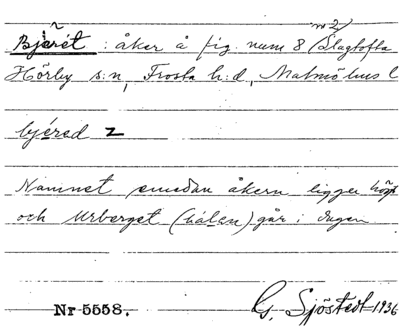 nr 2)
Bjärét : åker å fig. num 8 Slagtofta
Hörby s:n, Frosta h:d, Malmöhus l
bjéred z
Namnet emedan åkern ligger högt
och Urberget (hálen) går i dagen
Nr 5558.
G. Sjöstedt 1936